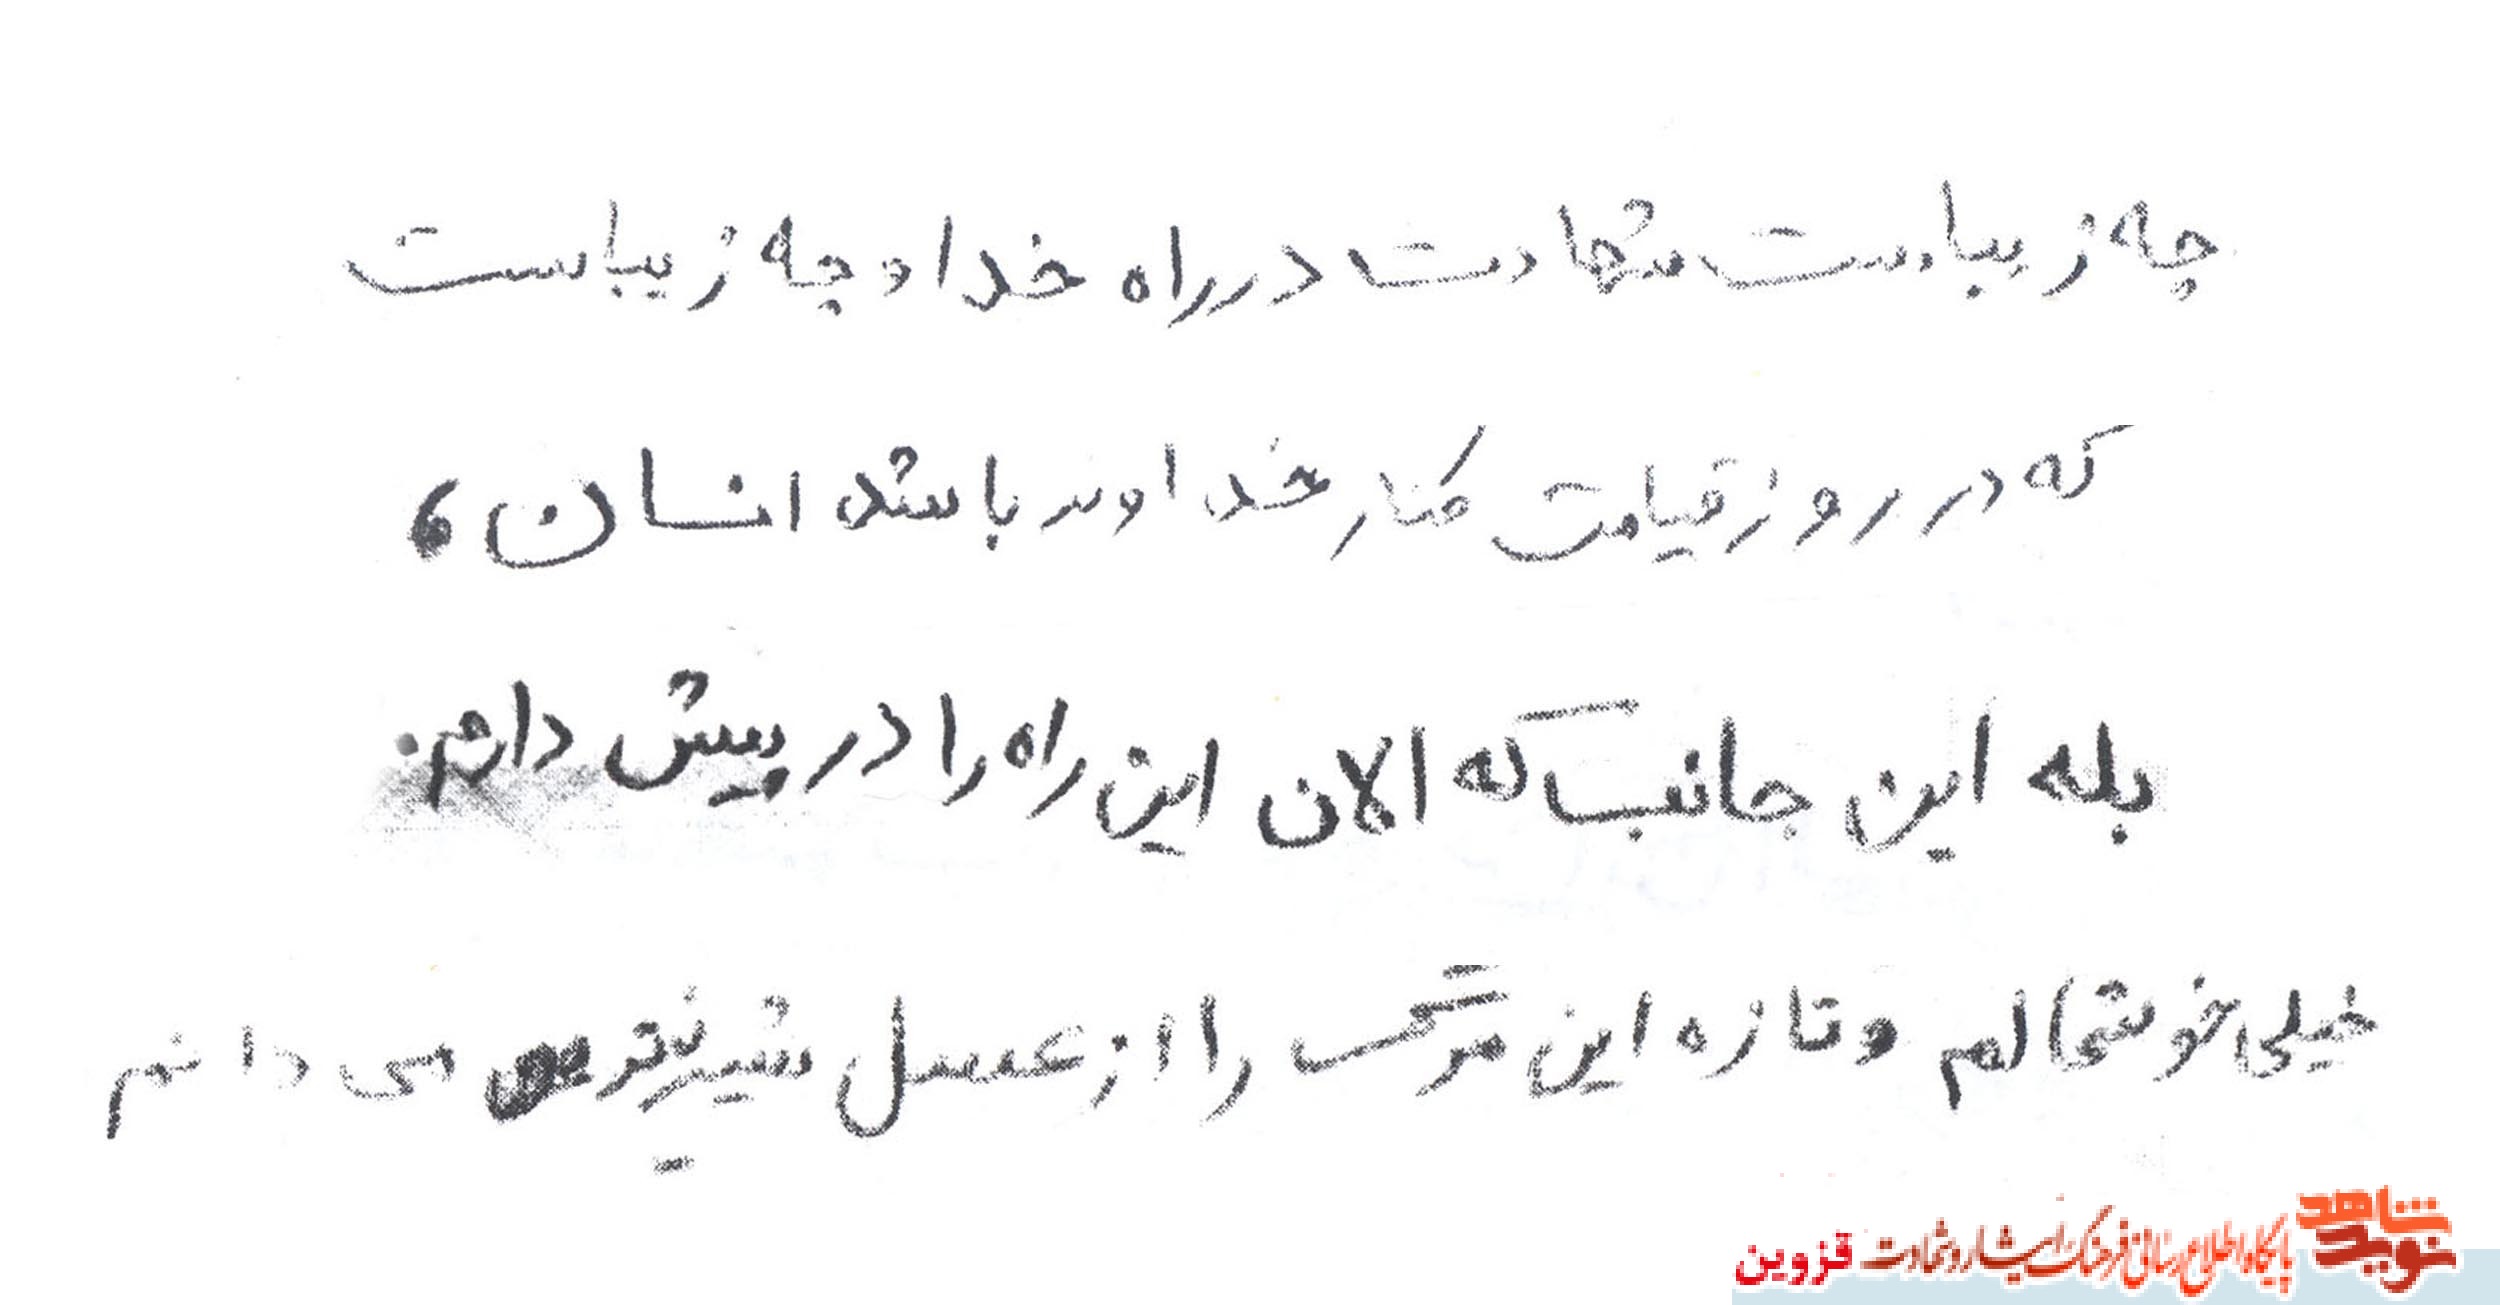 چه زیباست شهادت در راه خدا و چه زیباست
که در روز قیامت کنار خداوند باشد انسان،
بله این جانب که الان این راه را در پیش دارم.
خیلی خوشحالم و تازه این مرگ را از عسل شیرین‌تر می دانم
نوید شاهد
پایگاه اطلاع رسانی فرهنگ ایثار و شهادت قزوین